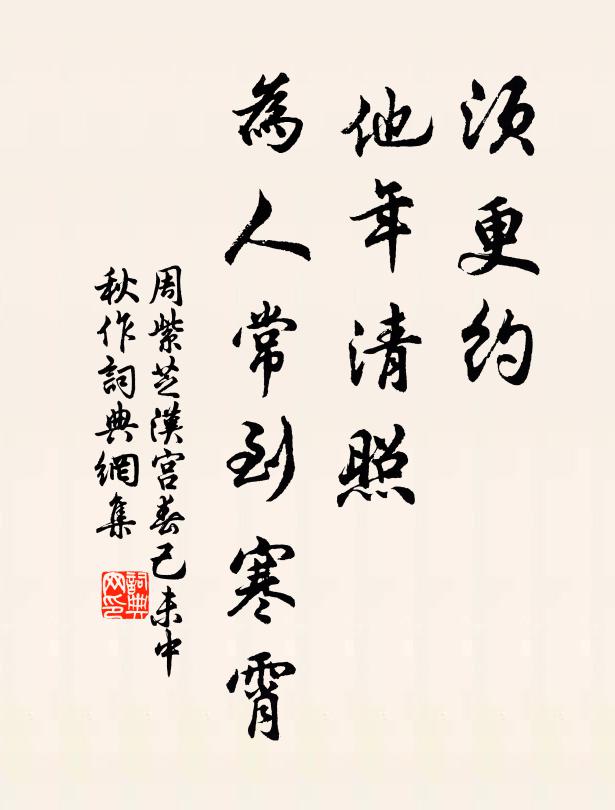 須更約
他年清照
為人常到寒霄
周紫芝漢宮春己未中
秋作詞典網集
詞典网印